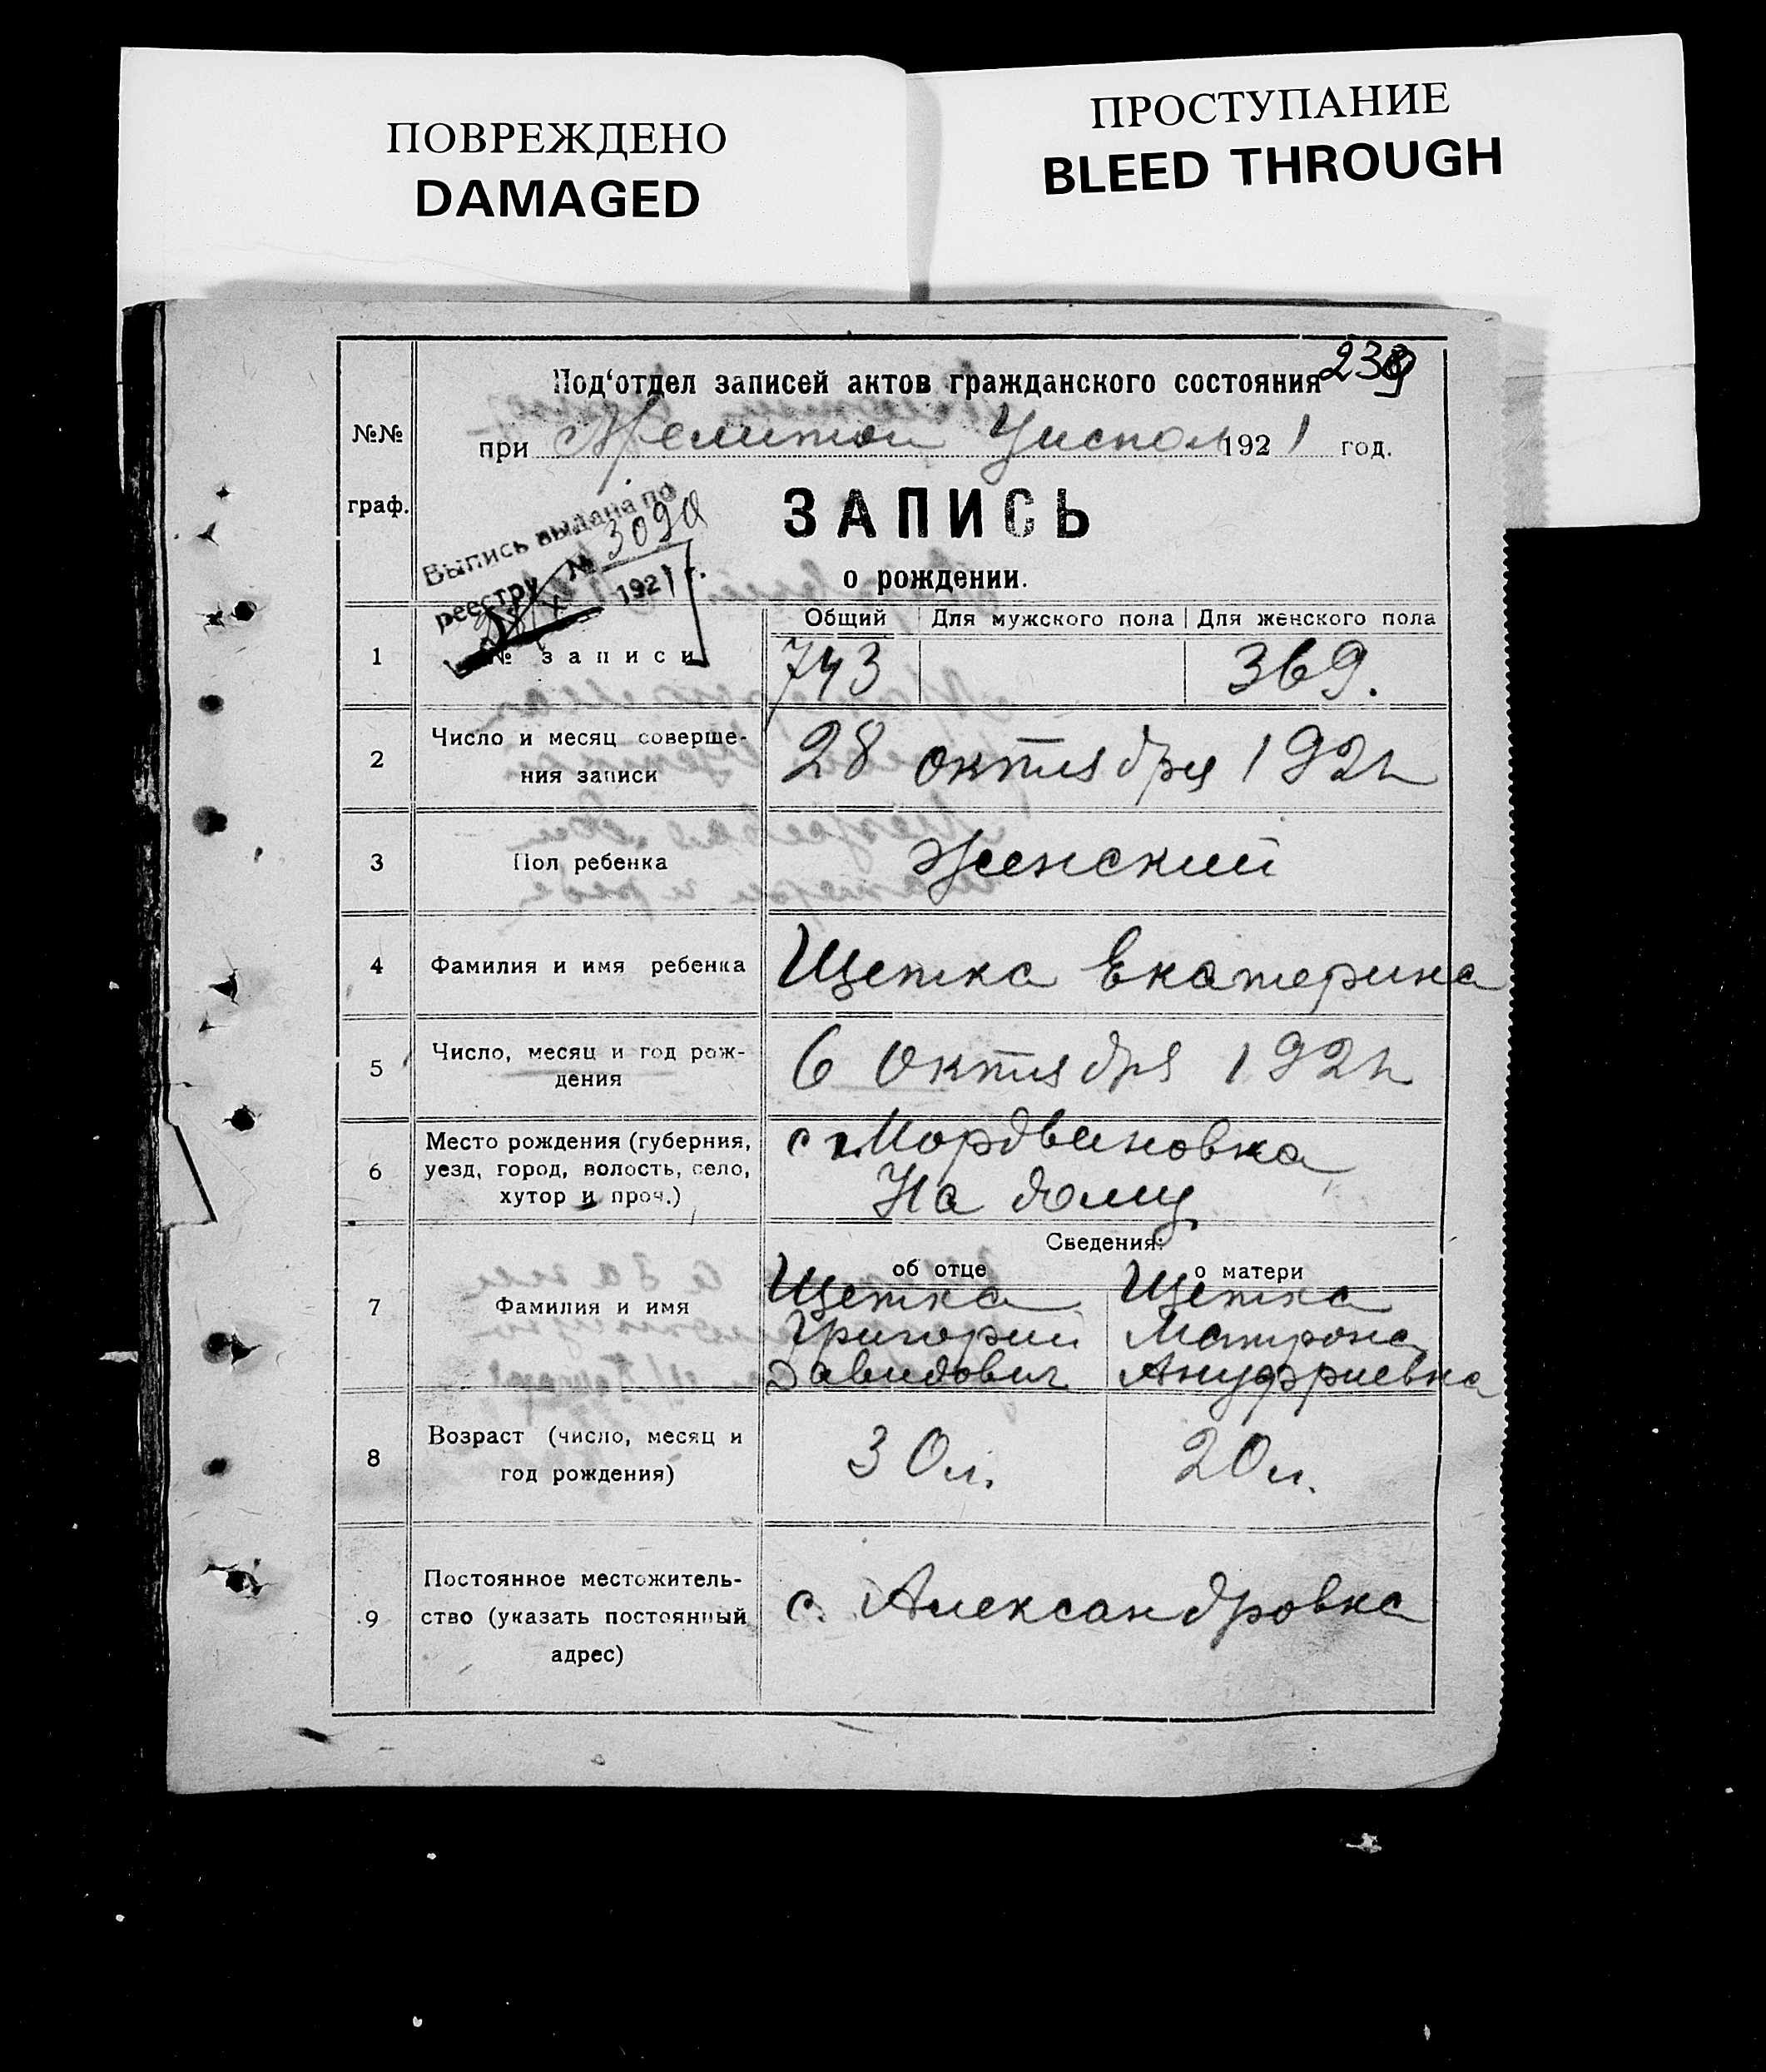 ПОВРЕЖДЕНО
DAMAGED
ПРОСТУПАНИЕ
BLEED THROUGH
239
№№
граф.
Под‘отдел записей актов гражданского состояния
при Мелитоп Уиспол 1921 год.
Выпись выдана по
реестру № 3090
1921 г.
ЗАПИСЬ
о рождении.
Общий Для мужского пола Для женского пола
1 № записи 743 369.
2 Число и месяц соверше-
ния записи
28 октября 1921
3 Пол ребенка Женский
4 Фамилия и имя ребенка Щетка Екатерина
5 Число, месяц и год рож-
дения
6 Октября 1921
6 Место рождения (губерния,
уезд, город, волость, село,
хутор и проч.)
с Мордвиновка
На дому
Сведения:
об отце о матери
7 Фамилия и имя
Щетка Щетка
Григорий Матрона
Давидович Ануфриевна
8 Возраст (число, месяц и
год рождения)
30 л. 20 л.
9 Постоянное местожитель-
ство (указать постоянный
адрес)
с. Александровка